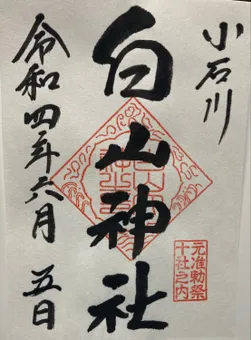 小石川
白山神社
元准勅祭
十社之内
令和四年六月五日